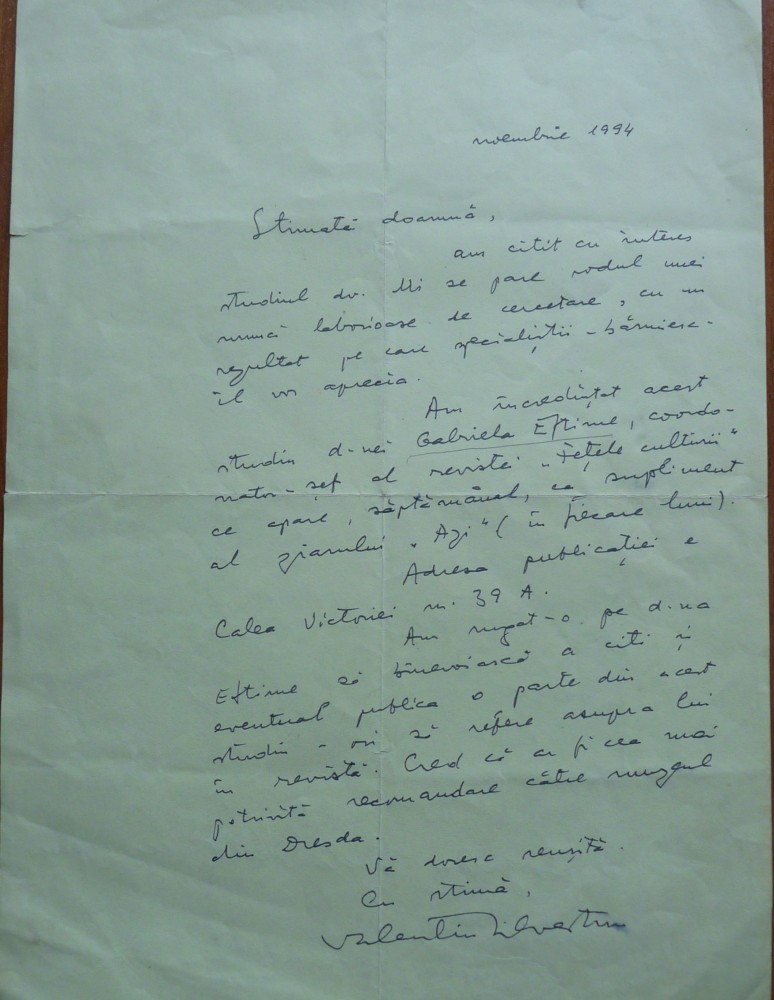 noembrie 1994
Stimată doamnă,
am citit cu interes
studiul dv. Mi se pare rodul unei
munci laborioase de cercetare, cu un
rezultat pe care specialiștii - bănuiesc -
îl vor aprecia.
Am încredințat acest
studiu d-nei Gabriela Eftime, coordo-
nator-șef al revistei „Fețele culturii"
ce apare, săptămânal, ca supliment
al ziarului „Azi" (în fiecare luni).
Adresa publicației e
Calea Victoriei nr. 39 A.
Am rugat-o pe d-na
Eftime să binevoiască a citi și
eventual publica o parte din acest
studiu - ori să refere asupra lui
în revistă. Cred că ar fi cea mai
potrivită recomandare către muzeul
din Dresda.
Vă doresc reușită.
Cu stimă,
Valentin Silvestru